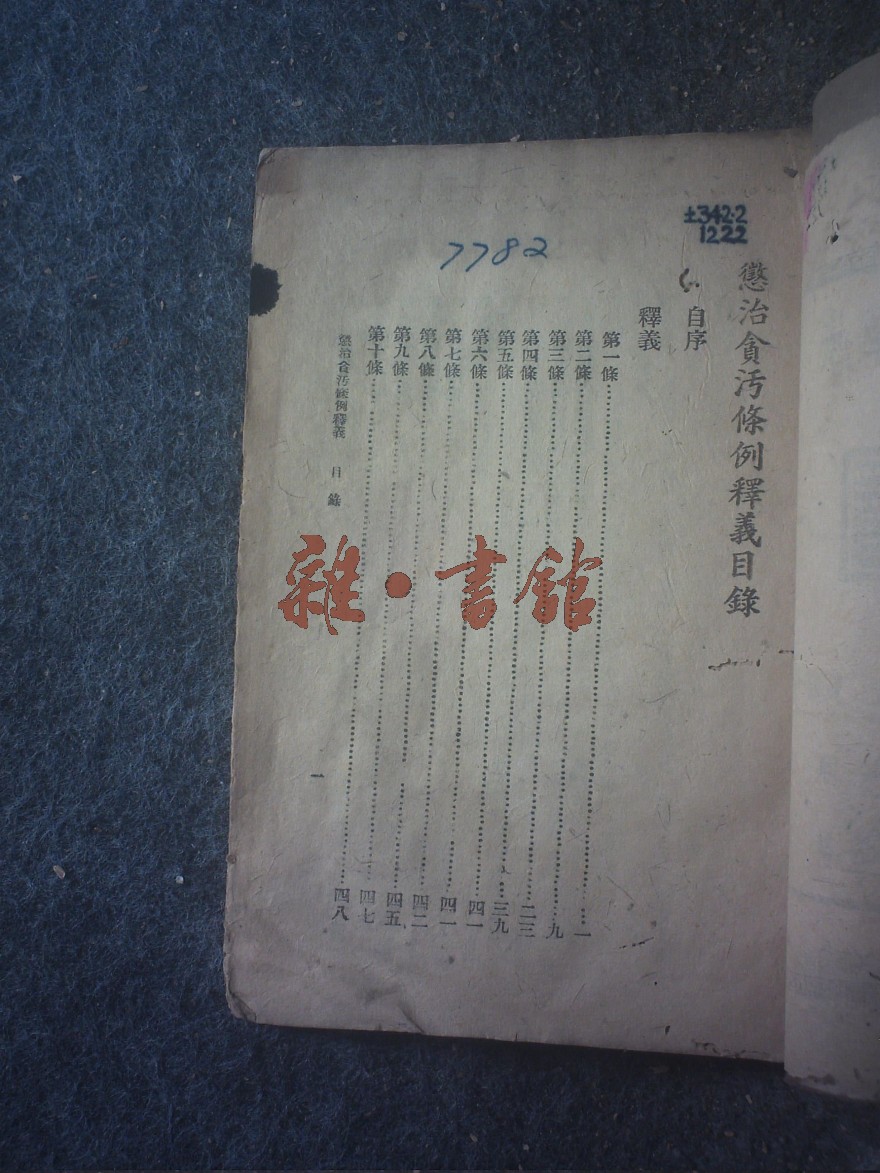 ±342·2
1222
7782
懲治貪汚條例釋義目錄
自序
釋義
第一條⋯⋯一
第二條⋯⋯九
第三條⋯⋯二三
第四條⋯⋯三九
第五條⋯⋯四一
第六條⋯⋯四二
第七條⋯⋯四二
第八條⋯⋯四五
第九條⋯⋯四七
第十條⋯⋯四八
懲治貪汚條例釋義 目錄
一
雜·書館